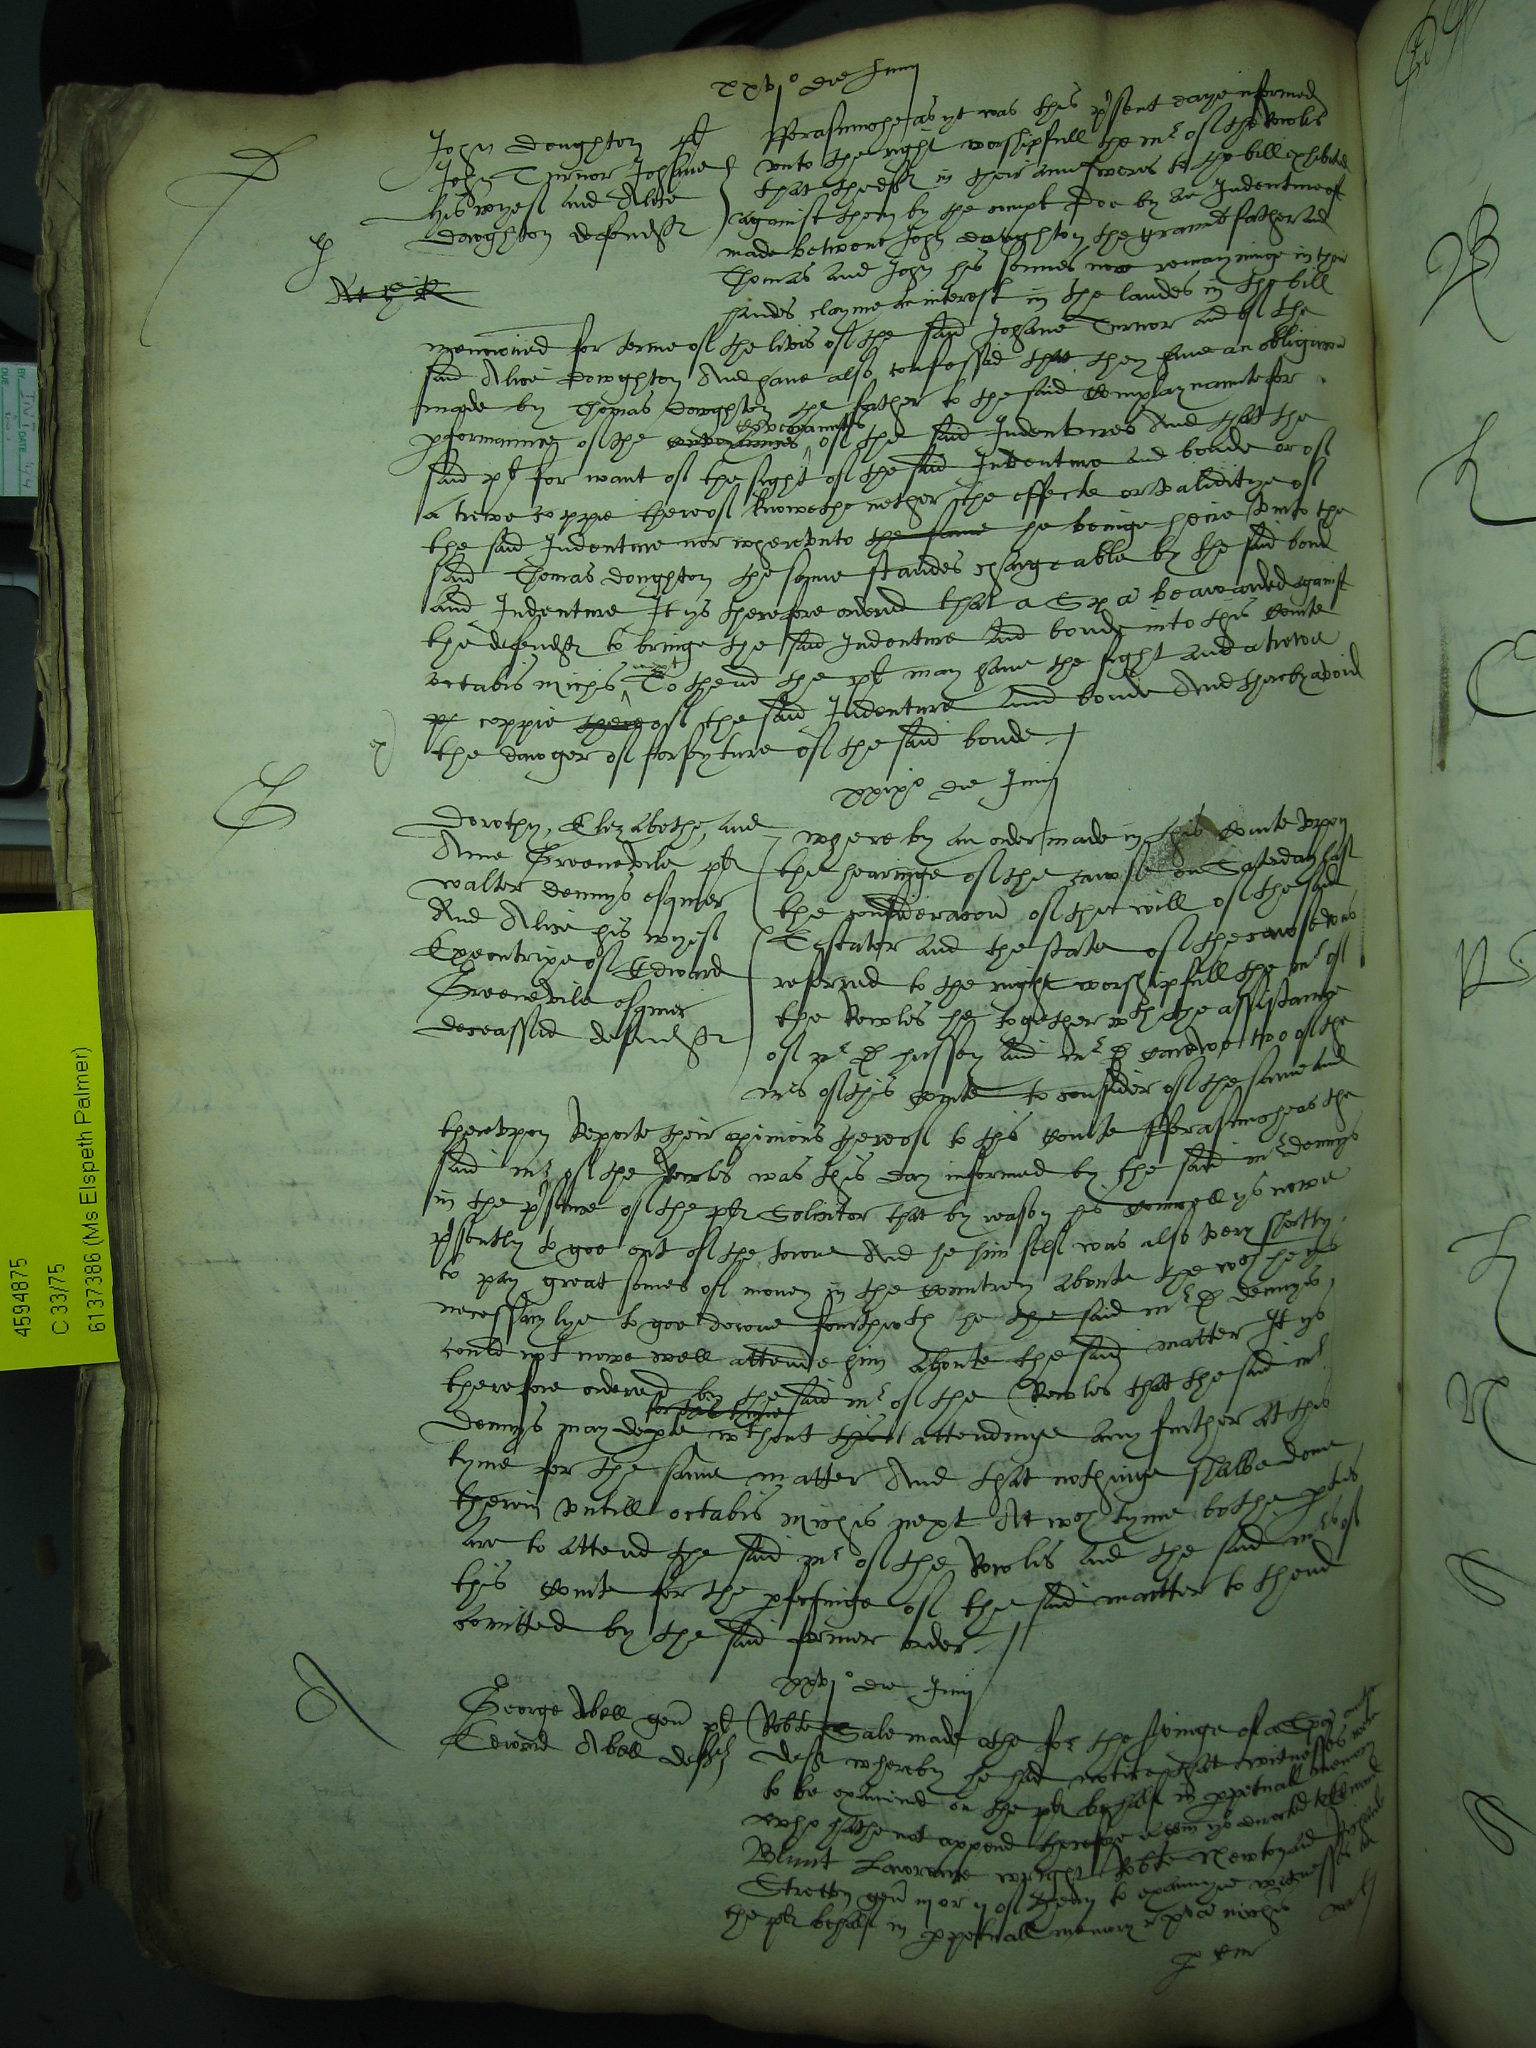 xxvjo die Junij
John Doughton pl
John Turnor Johane
his wyeff and Alice
Doughton defendtes
fforasmoche as yt was this pssent daye informed
vnto the right worshipfull the mr of the Rowles
that the deftes in their aunsweres to the bill exhibited
against them by the compt Doe by an Indenture of
made betwene John Doughton the graundfather and
Thomas and John his sonnes now remayninge in their
handes clayme an interest in the landes in the bill
mencioned for terme of the lives of the said Johane Turnor and of the
said Alice Doughton And have also confessid that they have an obligacion
made by Thomas Doughton the father to the said Complaynaunte for
pformaunce of the covenauntes of the said Indentures And that the
said pl for want of the sight of the said Indenture and bonde or of
a trewe coppie thereof knowethe nether the effecte or validitye of
the said Indenture nor wherevnto the same he beinge heire vnto the
said Thomas Doughton the same standes chargeable by the said bond
and Indenture It ys therefore ordered that a Spa be awarded against
the defendtes to bringe the said Indenture and bonde into this Courte
octabis michis next To thend the pl may have the sight and a trewe
coppie thereof of the said Indenture and bonde And therby avoid
the daunger of forfyture of the said bonde
xxixo die Junij
Dorothy, Elizabethe, and
Anne Greenevile pl
Walter Dennys esquier
And Alice his wyeff
Executrixe of Edward
Greenevile esquier
deceassid defendtes
where by an order made in this Courte vppon
the hearinge of the cawse on Saterday last
the consideracon of the will of the said
Testator and the state of the cawse was
referred to the right worshipfull the mr of
the Rowles he together wth the assistance
of mr D hussey and mr D Carewe two of the
mrs of this Courte to consider of the same and
therevpon Reporte their opinions thereof to this Courte fforasmoche as the
said mr of the Rowles was this day informed by the said mr Dennys
in the pssence of the pl Solicitor that by reason his Councell ys nowe
pssently to goe out of the towne And he him self was also very shortly
to pay great somes of money in the countrey aboute the wch he ys
necessarylye to goe downe fourthwth he the said mr Dennys
could not nowe well attende him aboute the said matter It ys
therefore ordered by the said mr of the Rowles that the said mr
Dennys may depte for this tyme wthout attendinge any further at this
tyme for the same matter And that nothinge shalbe done
therein vntill octabis michis next At wch tyme bothe pties
are to attend the said mr of the Rowles and the said mrs of
this Courte for the pfectinge of the said matter to thend
comitted by the said former order
xxvjo die Junij
George Abell gen pl
Edward Abell deft
Robte Sale made othe for the svinge of a Spa on the
deft whereby he had notice that witnesses were
to be examined on the pl behalf in ppetuall memory
who hathe not appered therefore a com ys directed to Edward
Blunt Lawrence wright Robte Newton and Richard
Stretton gen iij or ij of them to examyne witnesses in
the pl behalf in ppetuall memory michis next
4594875
C 33/75
6137386 (Ms Elspeth Palmer)